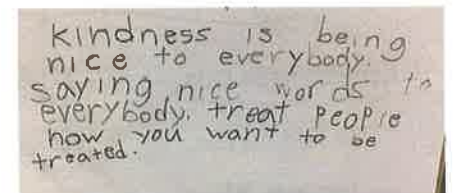 kindness is being
nice to everybody.
saying nice words to
everybody. treat people
how you want to be
treated.